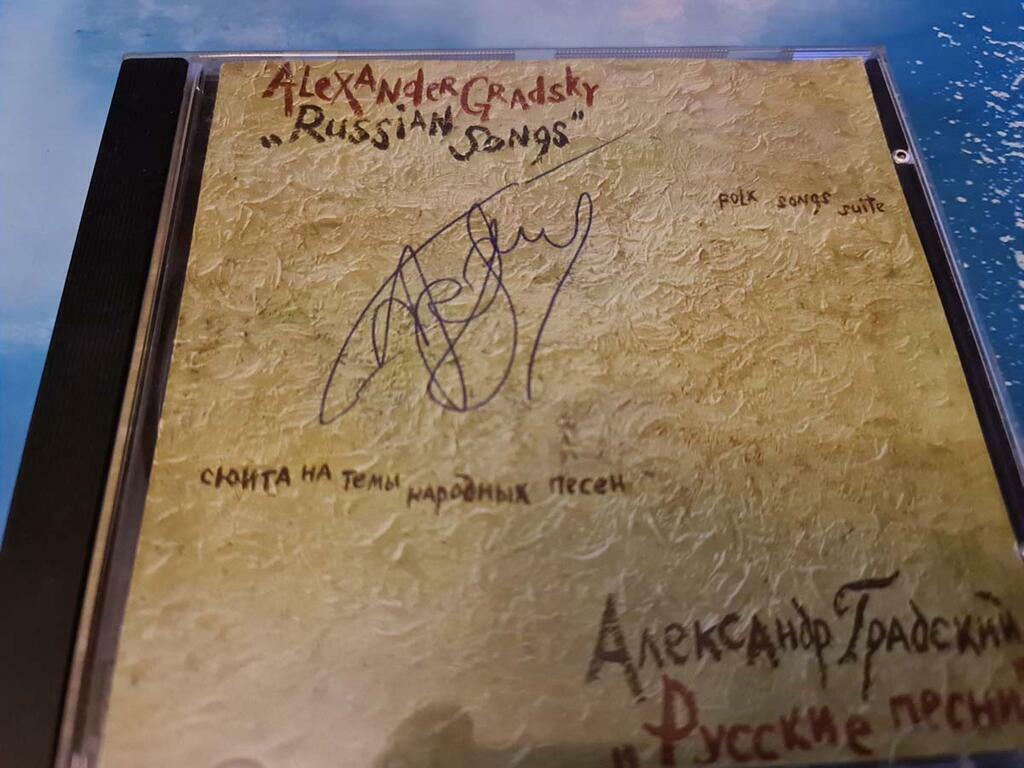 Alexander Gradsky
„Russian Songs"
folk songs suite
сюита на темы народных песен
Александр Градский
„Русские песни"